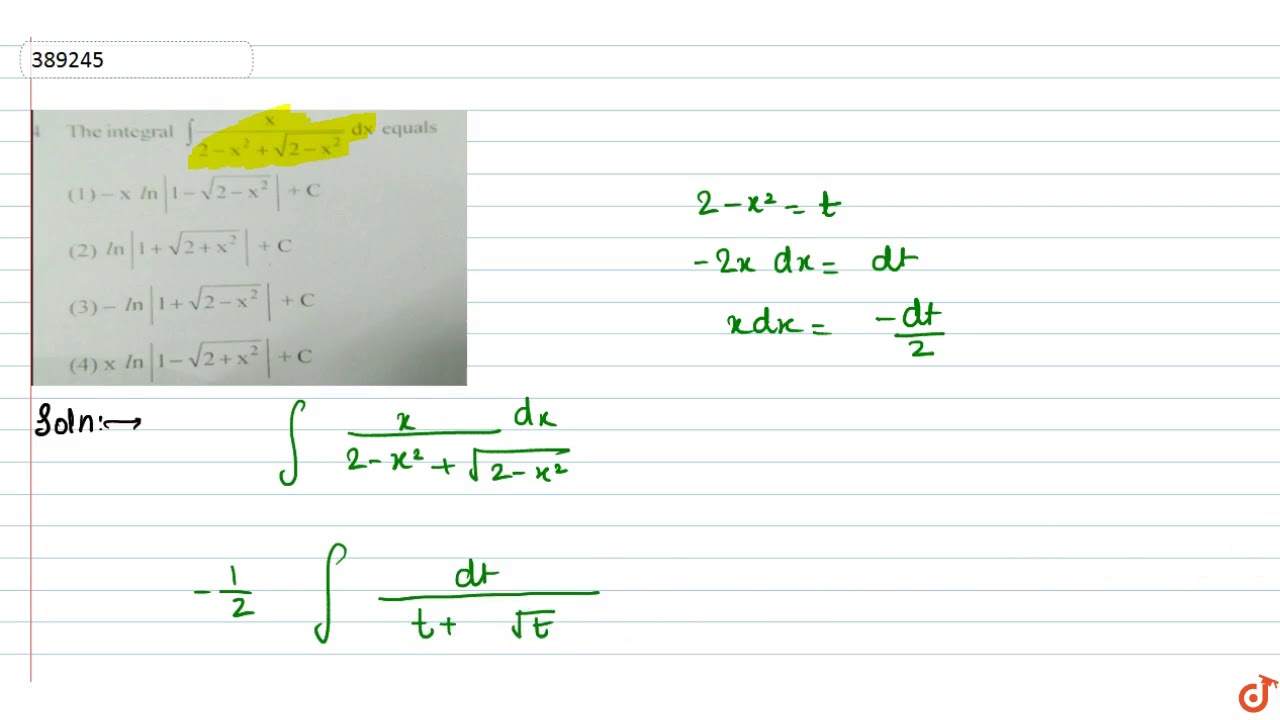 389245
4 The integral ∫ x / (2 − x² + √(2 − x²)) dx equals
(1) − x ln |1 − √(2 − x²)| + C
(2) ln |1 + √(2 + x²)| + C
(3) − ln |1 + √(2 − x²)| + C
(4) x ln |1 − √(2 + x²)| + C
2 − x² = t
−2x dx = dt
x dx = −dt / 2
Soln:→ ∫ x dx / (2 − x² + √(2 − x²))
−1/2 ∫ dt / (t + √t)